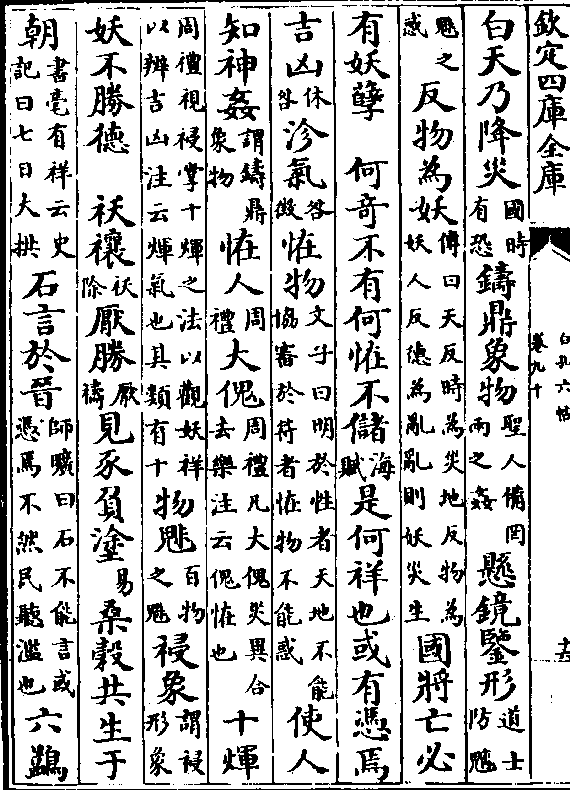 欽定四庫全書
白孔六帖
卷九十
十六
白天乃降災國時有恐鑄鼎象物聖人備罔兩之姦懸鏡鑒形道士防魑
魅之惑反物為妖傳曰天反時為災地反物為妖人反德為亂亂則妖災生國將亡必
有妖孽 何奇不有何恠不儲海賦是何祥也或有憑焉
吉凶休咎沴氣咎徵恠物文子曰明於性者天地不能協審於符者恠物不能惑使人
知神姦謂鑄鼎象物恠人周禮大傀周禮凡大傀災異合去樂注云傀恠也十煇
周禮視祲掌十煇之法以觀妖祥以辨吉凶注云煇氣也其類有十物魅百物之魅祲象謂祲形象
妖不勝德 祅禳祅除厭勝厭禱見豕負塗易桑穀共生于
朝書亳有祥云史記曰七日大拱石言於晉師曠曰石不能言或憑焉不然民聽濫也六鷁